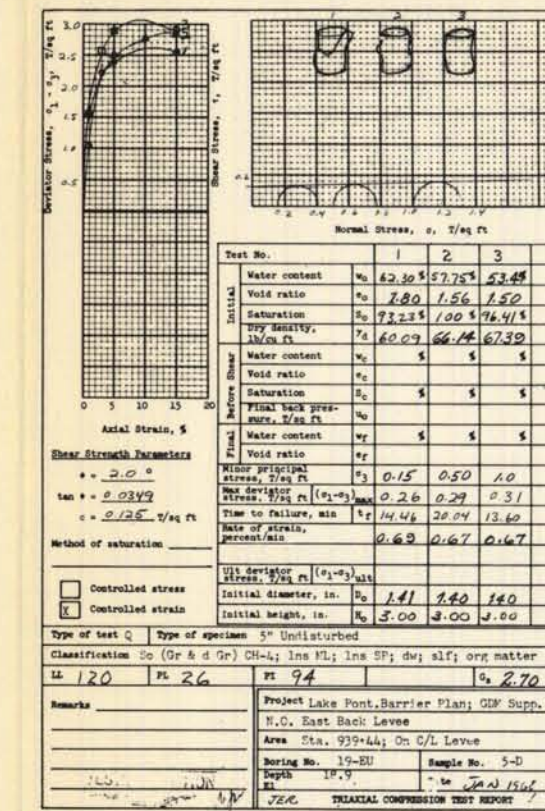 Deviator Stress, σ1 - σ3, T/sq ft
3.0
2.5
2.0
1.5
1.0
0.5
0 5 10 15 20
Axial Strain, %
Shear Stress, τ, T/sq ft
1 2 3
0.2
0.2 0.4 0.6 0.8 1.0 1.2 1.4
Normal Stress, σ, T/sq ft
Shear Strength Parameters
φ = 2.0 °
tan φ = 0.0349
c = 0.125 T/sq ft
Method of saturation
Controlled stress
X Controlled strain
Test No. 1 2 3
Initial
Water content wo 62.30 % 57.75 % 53.49 %
Void ratio eo 1.80 1.56 1.50
Saturation So 93.23 % 100 % 96.41 %
Dry density, lb/cu ft γd 60.09 66.14 67.39
Before Shear
Water content wc % % %
Void ratio ec
Saturation Sc % % %
Final back pressure, T/sq ft uo
Final
Water content wf % % %
Void ratio ef
Minor principal stress, T/sq ft σ3 0.15 0.50 1.0
Max deviator stress, T/sq ft (σ1-σ3)max 0.26 0.29 0.31
Time to failure, min tf 14.46 20.04 13.60
Rate of strain, percent/min 0.69 0.67 0.67
Ult deviator stress, T/sq ft (σ1-σ3)ult
Initial diameter, in. Do 1.41 1.40 1.40
Initial height, in. Ho 3.00 3.00 3.00
Type of test Q Type of specimen 5" Undisturbed
Classification So (Gr & d Gr) CH-4; lns ML; lns SP; dw; slf; org matter
LL 120 PL 26 PI 94 Gs 2.70
Remarks
Project Lake Pont.Barrier Plan; GDM Supp.
N.O. East Back Levee
Area Sta. 939+44; On C/L Levee
Boring No. 19-EU Sample No. 5-D
Depth El 18.9 JAN 196
JER TRIAXIAL COMPRESSION TEST REPORT